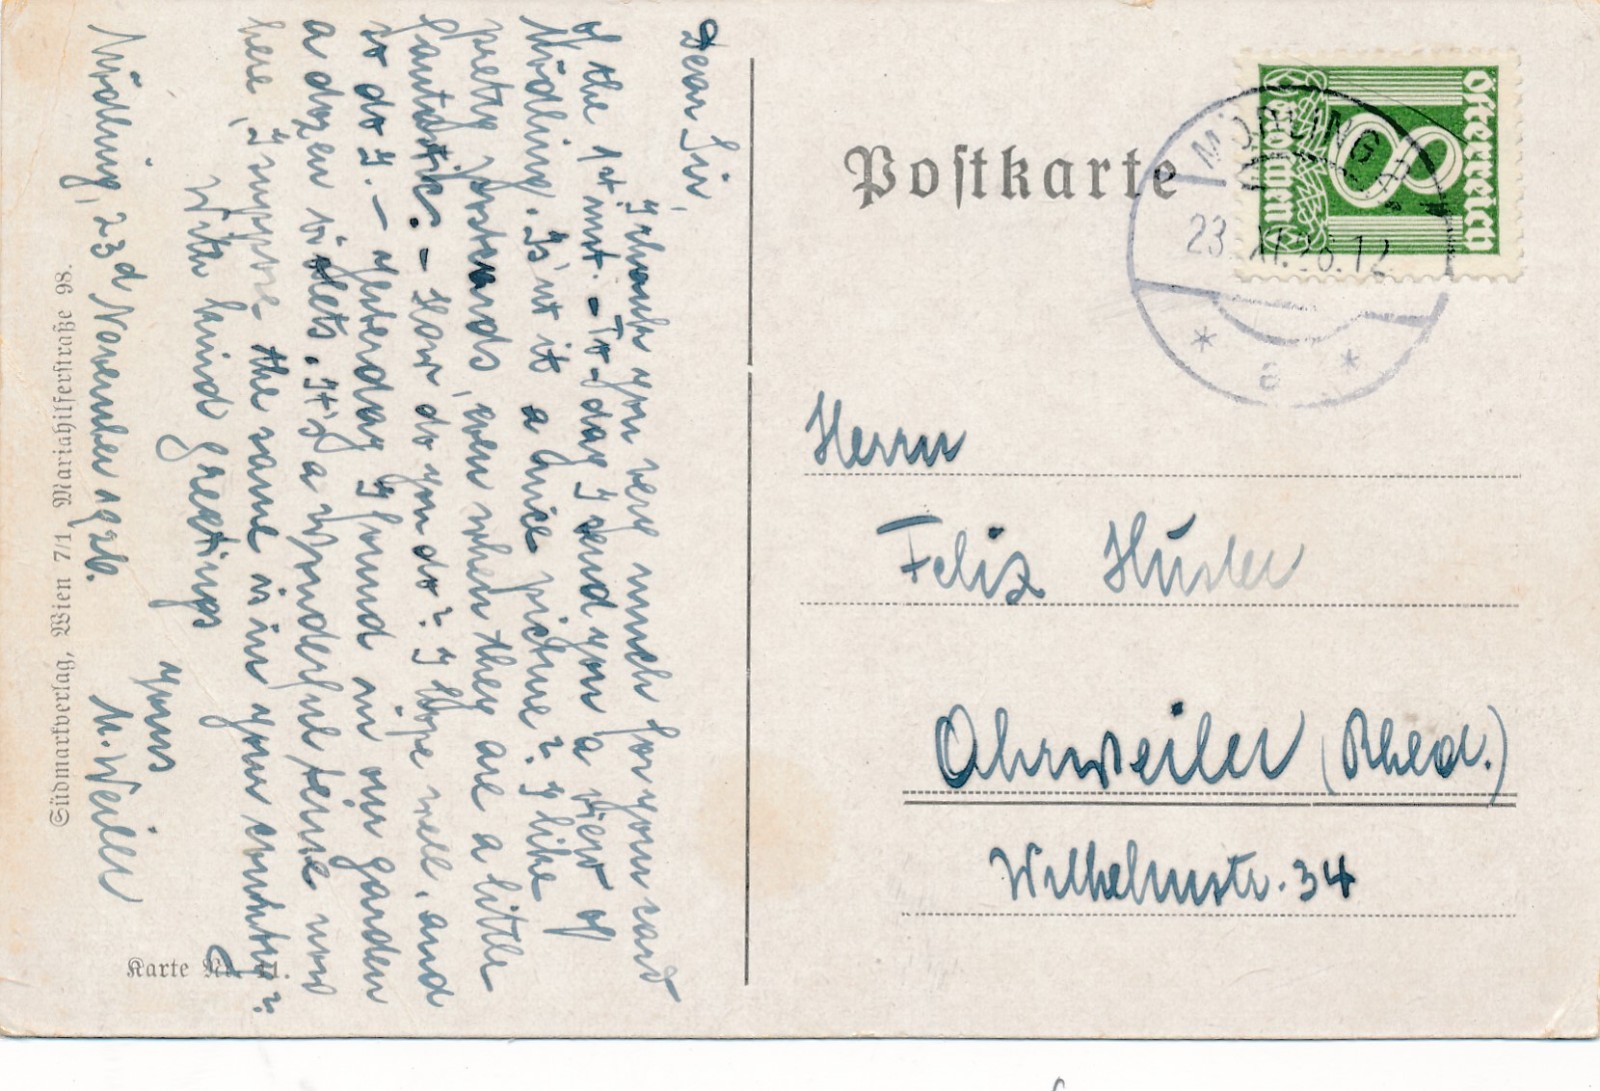 Dear Sir,
I thank you very much for your card
of the 1st inst. - To-day I send you a view of
Mödling. Is'nt it a nice picture? I like
pretty postcards, even when they are a little
fantastic. - How do you do? I hope well, and
so do I. - Yesterday I found in our garden
a dozen violets. It's a wonderful time now
here, I suppose the same is in your country?
With kind greetings
yours
Mödling, 23d November 1926. M. Weiler
Südmarkverlag, Wien 7/1, Mariahilferstraße 98.
Karte Nr. 11.
Postkarte
Österreich
8
Groschen
MÖDLING
23. XI. 26. 12
* a *
Herrn
Felix Hüsler
Ahrweiler (Rhld.)
Wilhelmstr. 34